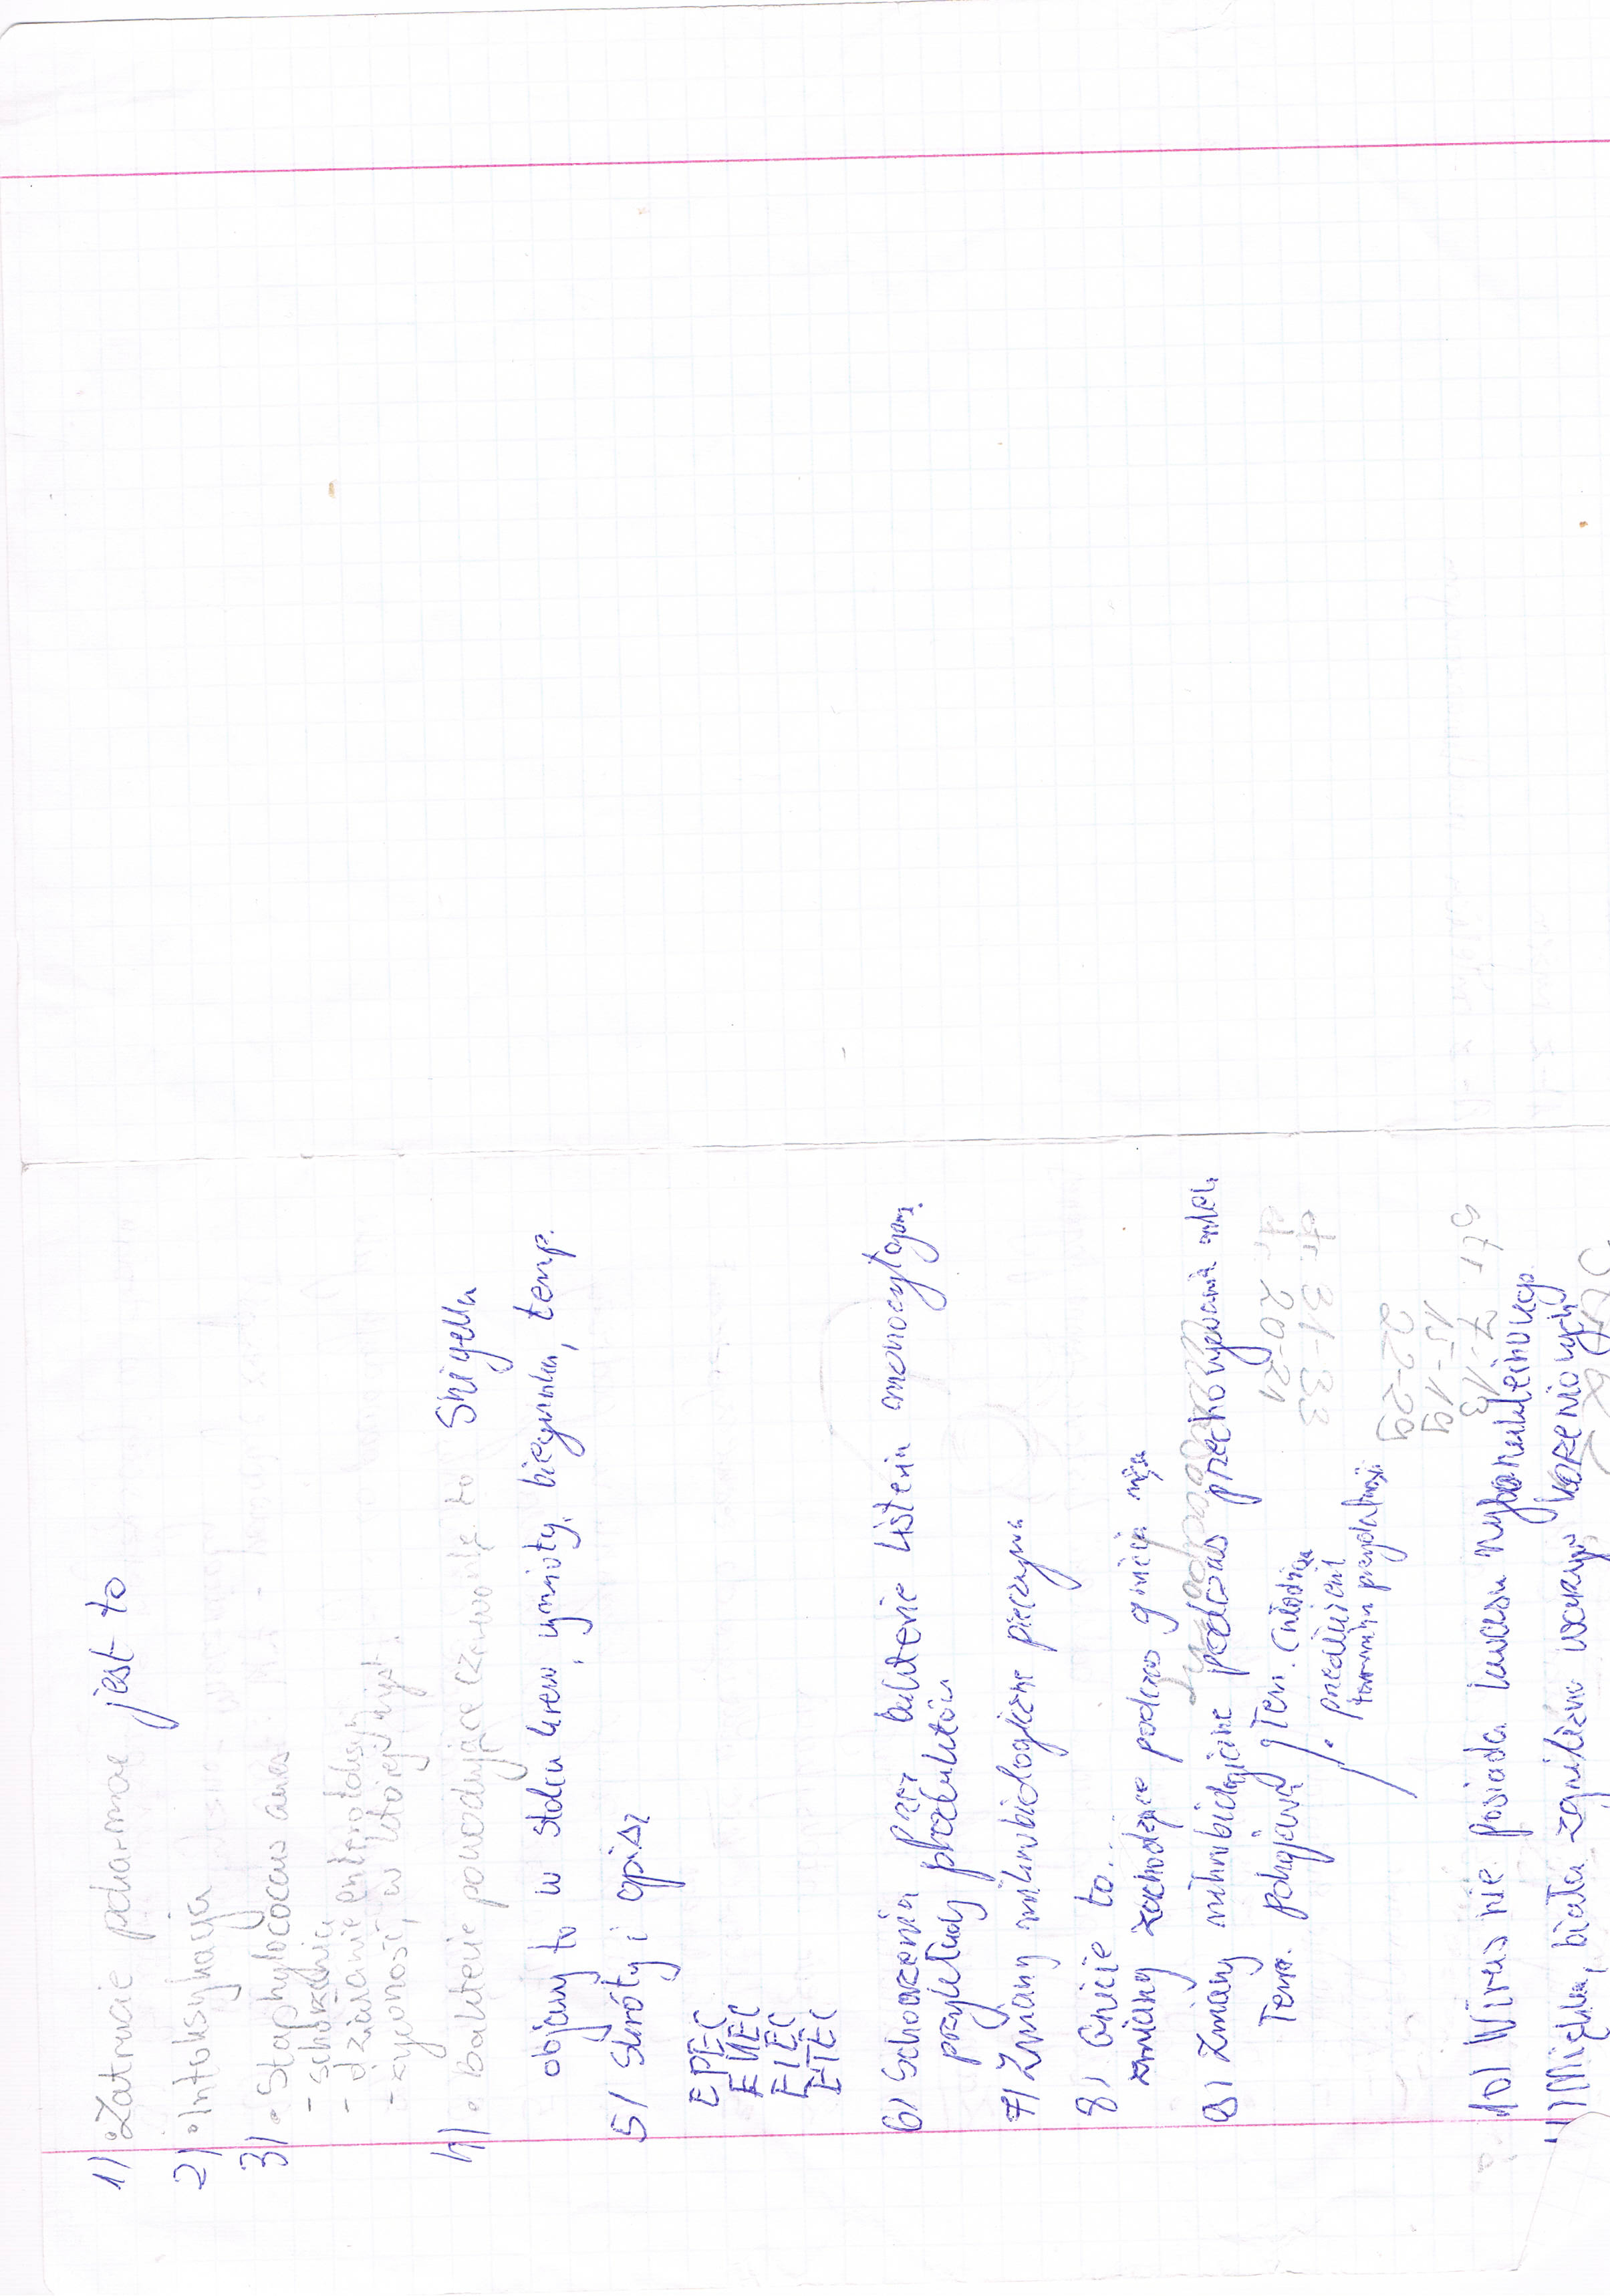 1) • Zatrucie pokarmowe jest to
2) • Intoksykacja
3) • Staphylococcus aureus
- schorzenie
- działanie enterotoksyn
- żywność, w której żyje
4) • Bakterie powodujące czerwonkę to Shigella
objawy to w stolcu krew, wymioty, biegunka, temp.
5) Skróty i opisz
EPEC
EHEC
EIEC
ETEC
6) Schorzenia przez bakterie Listeria monocytogen.
przykłady produktów
7) Zmiany mikrobiologiczne pieczywa
8) Gnicie to...
zmiany zachodzące podczas gnicia mięsa
9) Zmiany mikrobiologiczne podczas przechowywania mleka
Tem. pokojowa / Tem. chłodnicza
• przedłużenie
terminu przydatności
str. 20-21
str. 31-33
22-29
15-19
str. 7-13
10) Wirus nie posiada kwasu rybonukleinowego
Miękka, biała zgnilizna warzyw korzeniowych